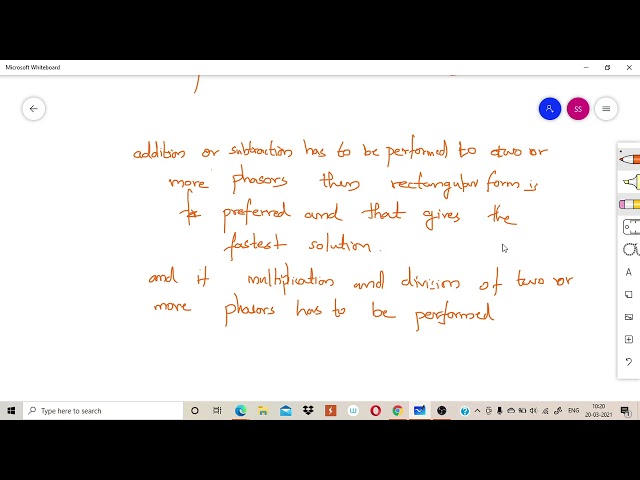 Microsoft Whiteboard
SS
addition or subtraction has to be performed to two or
more phasors then rectangular form is
preferred and that gives the
fastest solution.
and if multiplication and division of two or
more phasors has to be performed
Type here to search
ENG
10:20
20-03-2021